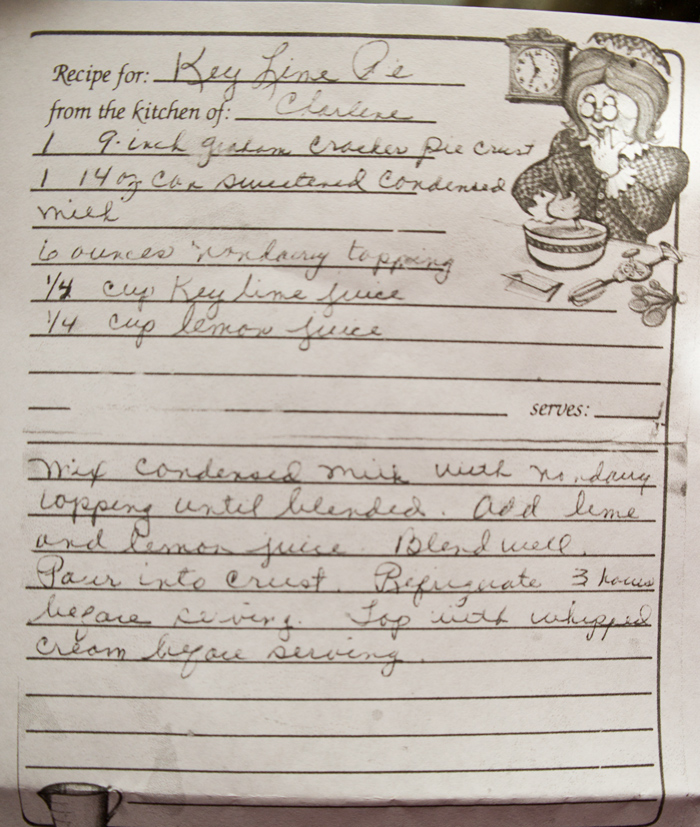 Recipe for: Key Lime Pie
from the kitchen of: Charlene
1 9-inch graham cracker pie crust
1 14 oz can sweetened condensed
milk
6 ounces nondairy topping
1/4 cup Key lime juice
1/4 cup lemon juice
serves:
Mix condensed milk with nondairy
topping until blended. Add lime
and lemon juice. Blend well.
Pour into crust. Refrigerate 3 hours
before serving. Top with whipped
cream before serving.